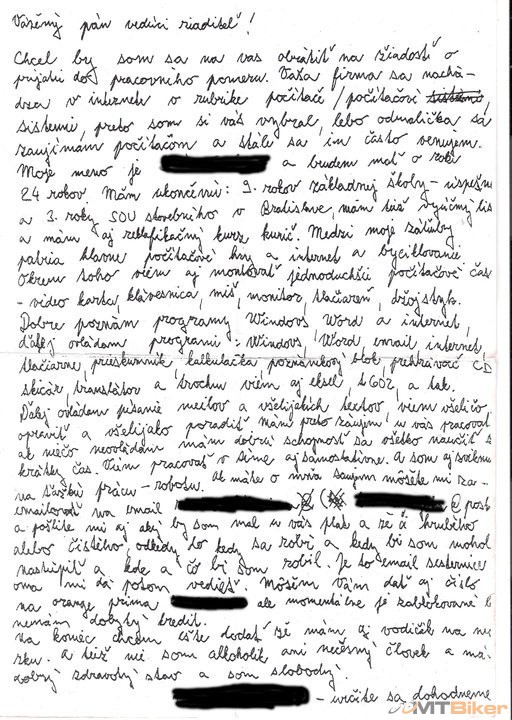 Vážený pán vedúci riaditeľ!
Chcel by som sa na vas obrátiť na žiadosť o
prijatu do pracovního pomeru. Vaša firma sa nachá-
dza v internete v rubrike počítače/počítačové
sistemi, preto som si vás vybral, lebo odmalička sa
zaujímám počítačom a stále sa im často venujem.
Moje meno je a budem mať o rok
24 rokov Mám ukončenú: 9. rokov základnej školy - úspešne
a 3. roky SOU stavebního v Bratislave, mám též výučný lis
a mám aj reklafikačný kurz kurič. Medzi moje záľuby
patria hlavne počítačové hry a internet a byciklovanie
Okrem toho viem aj montovať jednoduchšie počítačové čas
- video karta, klávesnica, miš, monitor, tlačiareň, džojstyk.
Dobre poznám programy Windovs Word a internet,
ďalej ovládam programi: Windovs, Word, email internet,
tlačiarne, prieskumník, kalkulačka poznámkový blok, prehrávač CD
skicár, translátor a trochu viem aj eksel, T602, a tak.
Ďalej ovládam písanie meilov a všelijakých textov, viem všeličo
opraviť a všelijako poradiť mám preto záujem u vás pracovať
ak niečo neovládám mám dobrú schopnosť sa všetko naučiť s
krátky čas. Viem pracovať v tíme aj samostatne. A som aj zviknu
na ťažkú prácu - robotu. Ak máte o mňa saujem môšete mi za-
emailovať na email @post
a pošlite mi aj aký by som mal u vás plat a že či hrubího
alebo čistího, odkedy do kedy sa robí a kedy bi som mohol
nastúpiť a kde a čo bi som robil. Je to email sesternice
oma mi dá potom vedieť. Môžim Vám dať aj číslo
na orange prima ale momentálne je zablokované l
nemám dobytý kredit.
na koniec chcem ešte dodať že mám aj vodičák na mo
zku. a též nie som alkoholik ani nečesný človek a má-
dobrý zdravotný stav a som slobodný.
- určite sa dohodneme
MTBiker